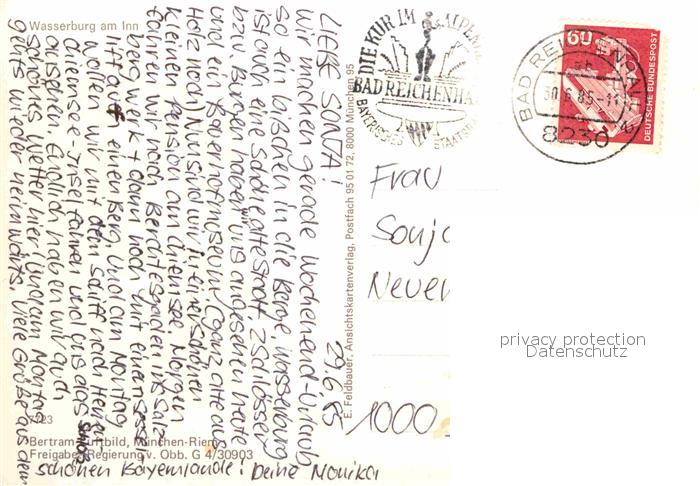 Wasserburg am Inn
29.6.85
LIEBE SONJA!
Wir machen gerade Wochenend-Urlaub
so ein bißchen in die Berge. Wasserburg
ist auch eine schöne Altestadt, 2 Schlösser
bzw. Burgen haben wir uns angesehen heute
und ein Bauernhofmuseum, (ganz alte aus
Holz noch) Nun sind wir in einer schönen
kleinen Pension am Chiemsee. Morgen
fahren wir nach Berchtesgaden ins Salz-
bergwerk + dann noch mit einem Sessel-
lift auf einen Berg. Und am Montag
wollen wir mit dem Schiff nach Herren-
chiemsee-Insel fahren und uns das Schloß
ansehen. Endlich haben wir auch
schönes Wetter hier! Und am Montag
gehts wieder heimwärts. Viele Grüße aus dem
schönen Bayernlande! Deine Monika
7/23
Bertram-Luftbild, München-Riem
Freigabe: Regierung v. Obb. G 4/30903
E. Feldbauer, Ansichtskartenverlag, Postfach 95 01 72, 8000 München 95
DIE KUR IM ALPENKLIMA
BAD REICHENHALL
BAYERISCHES STAATSBAD
60
DEUTSCHE BUNDESPOST
BAD REICHENHALL 2
30.6.85-11
8230
Frau
Sonja
Neuer
1000
privacy protection
Datenschutz